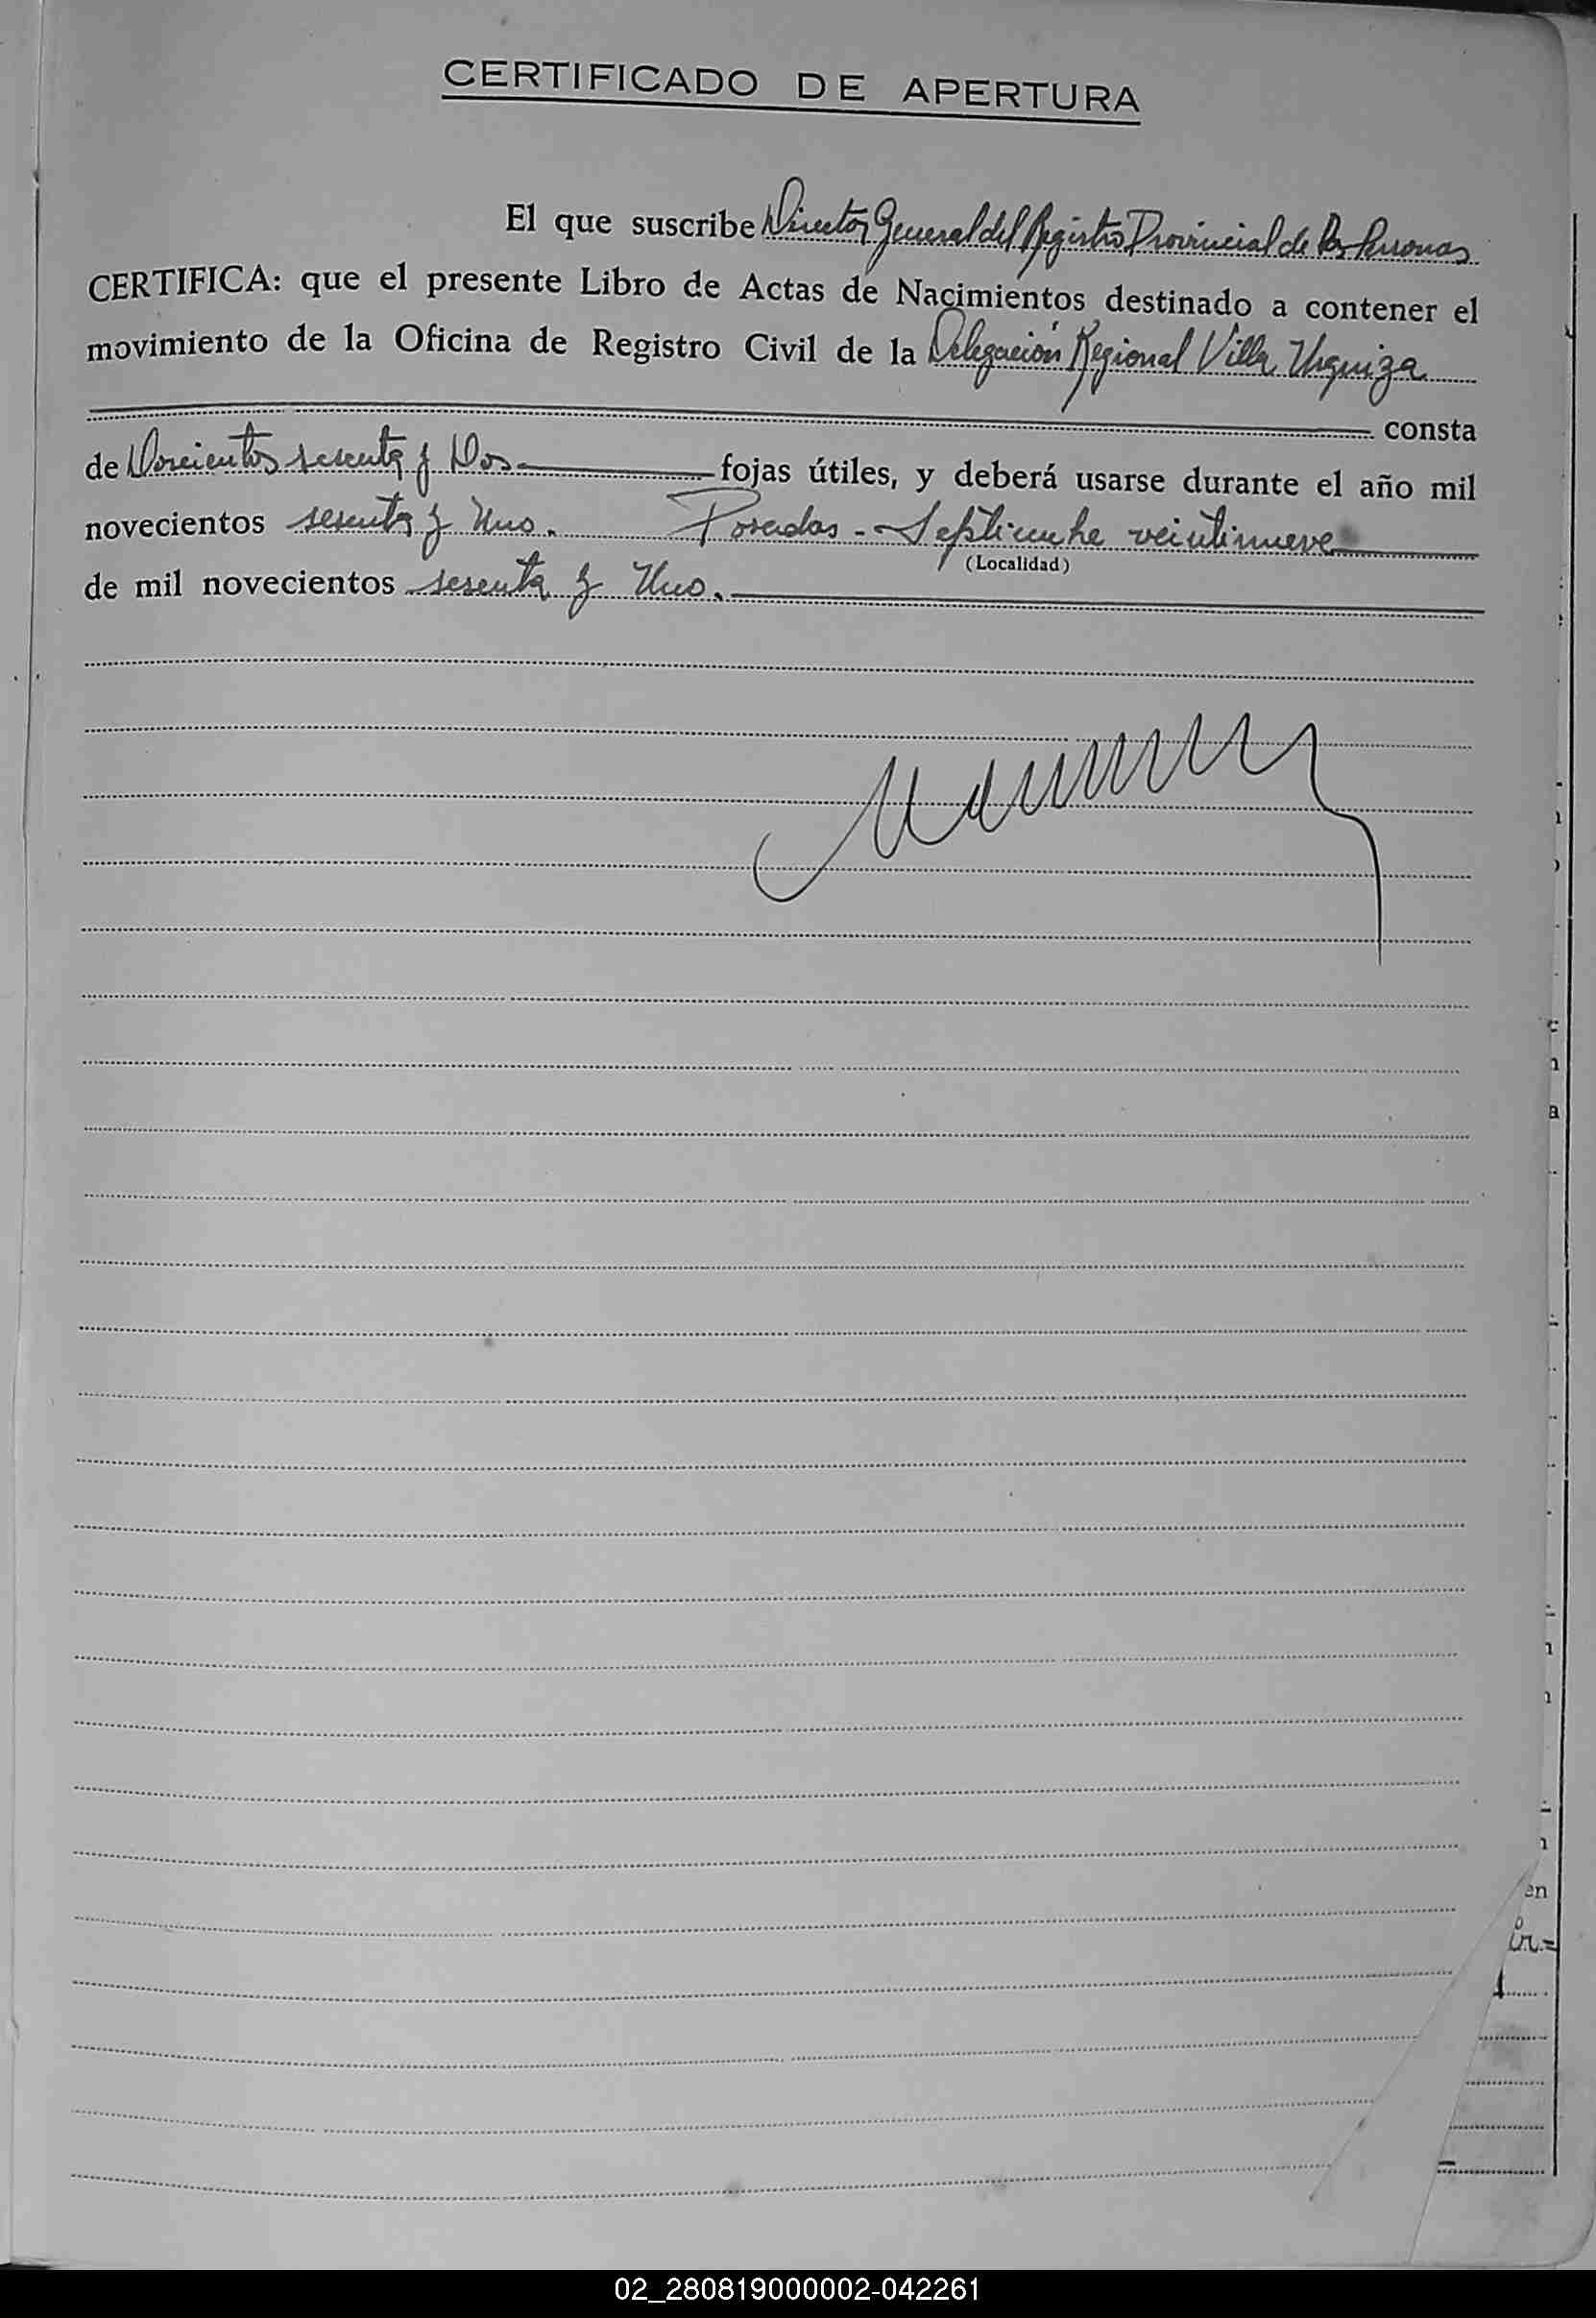 CERTIFICADO DE APERTURA
El que suscribe Director General del Registro Provincial de las Personas
CERTIFICA: que el presente Libro de Actas de Nacimientos destinado a contener el
movimiento de la Oficina de Registro Civil de la Delegación Regional Villa Urquiza
consta
de Doscientos sesenta y Dos fojas útiles, y deberá usarse durante el año mil
novecientos sesenta y Uno. Posadas - Septiembre veintinueve
(Localidad)
de mil novecientos sesenta y Uno.
en
02_280819000002-042261